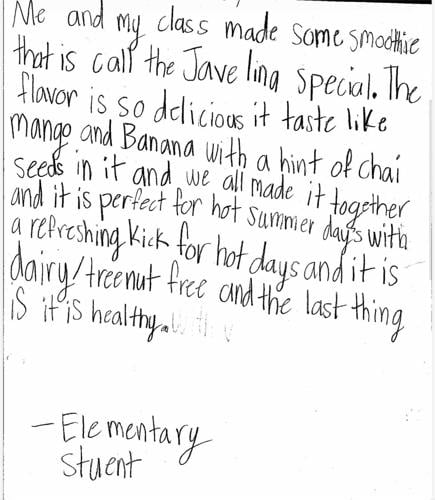 Me and my class made some smoothie
that is call the Javelina special. The
flavor is so delicious it taste like
mango and Banana with a hint of chai
seeds in it and we all made it together
and it is perfect for hot summer days with
a refreshing kick for hot days and it is
dairy/treenut free and the last thing
is it is healthy.
- Elementary
Stuent